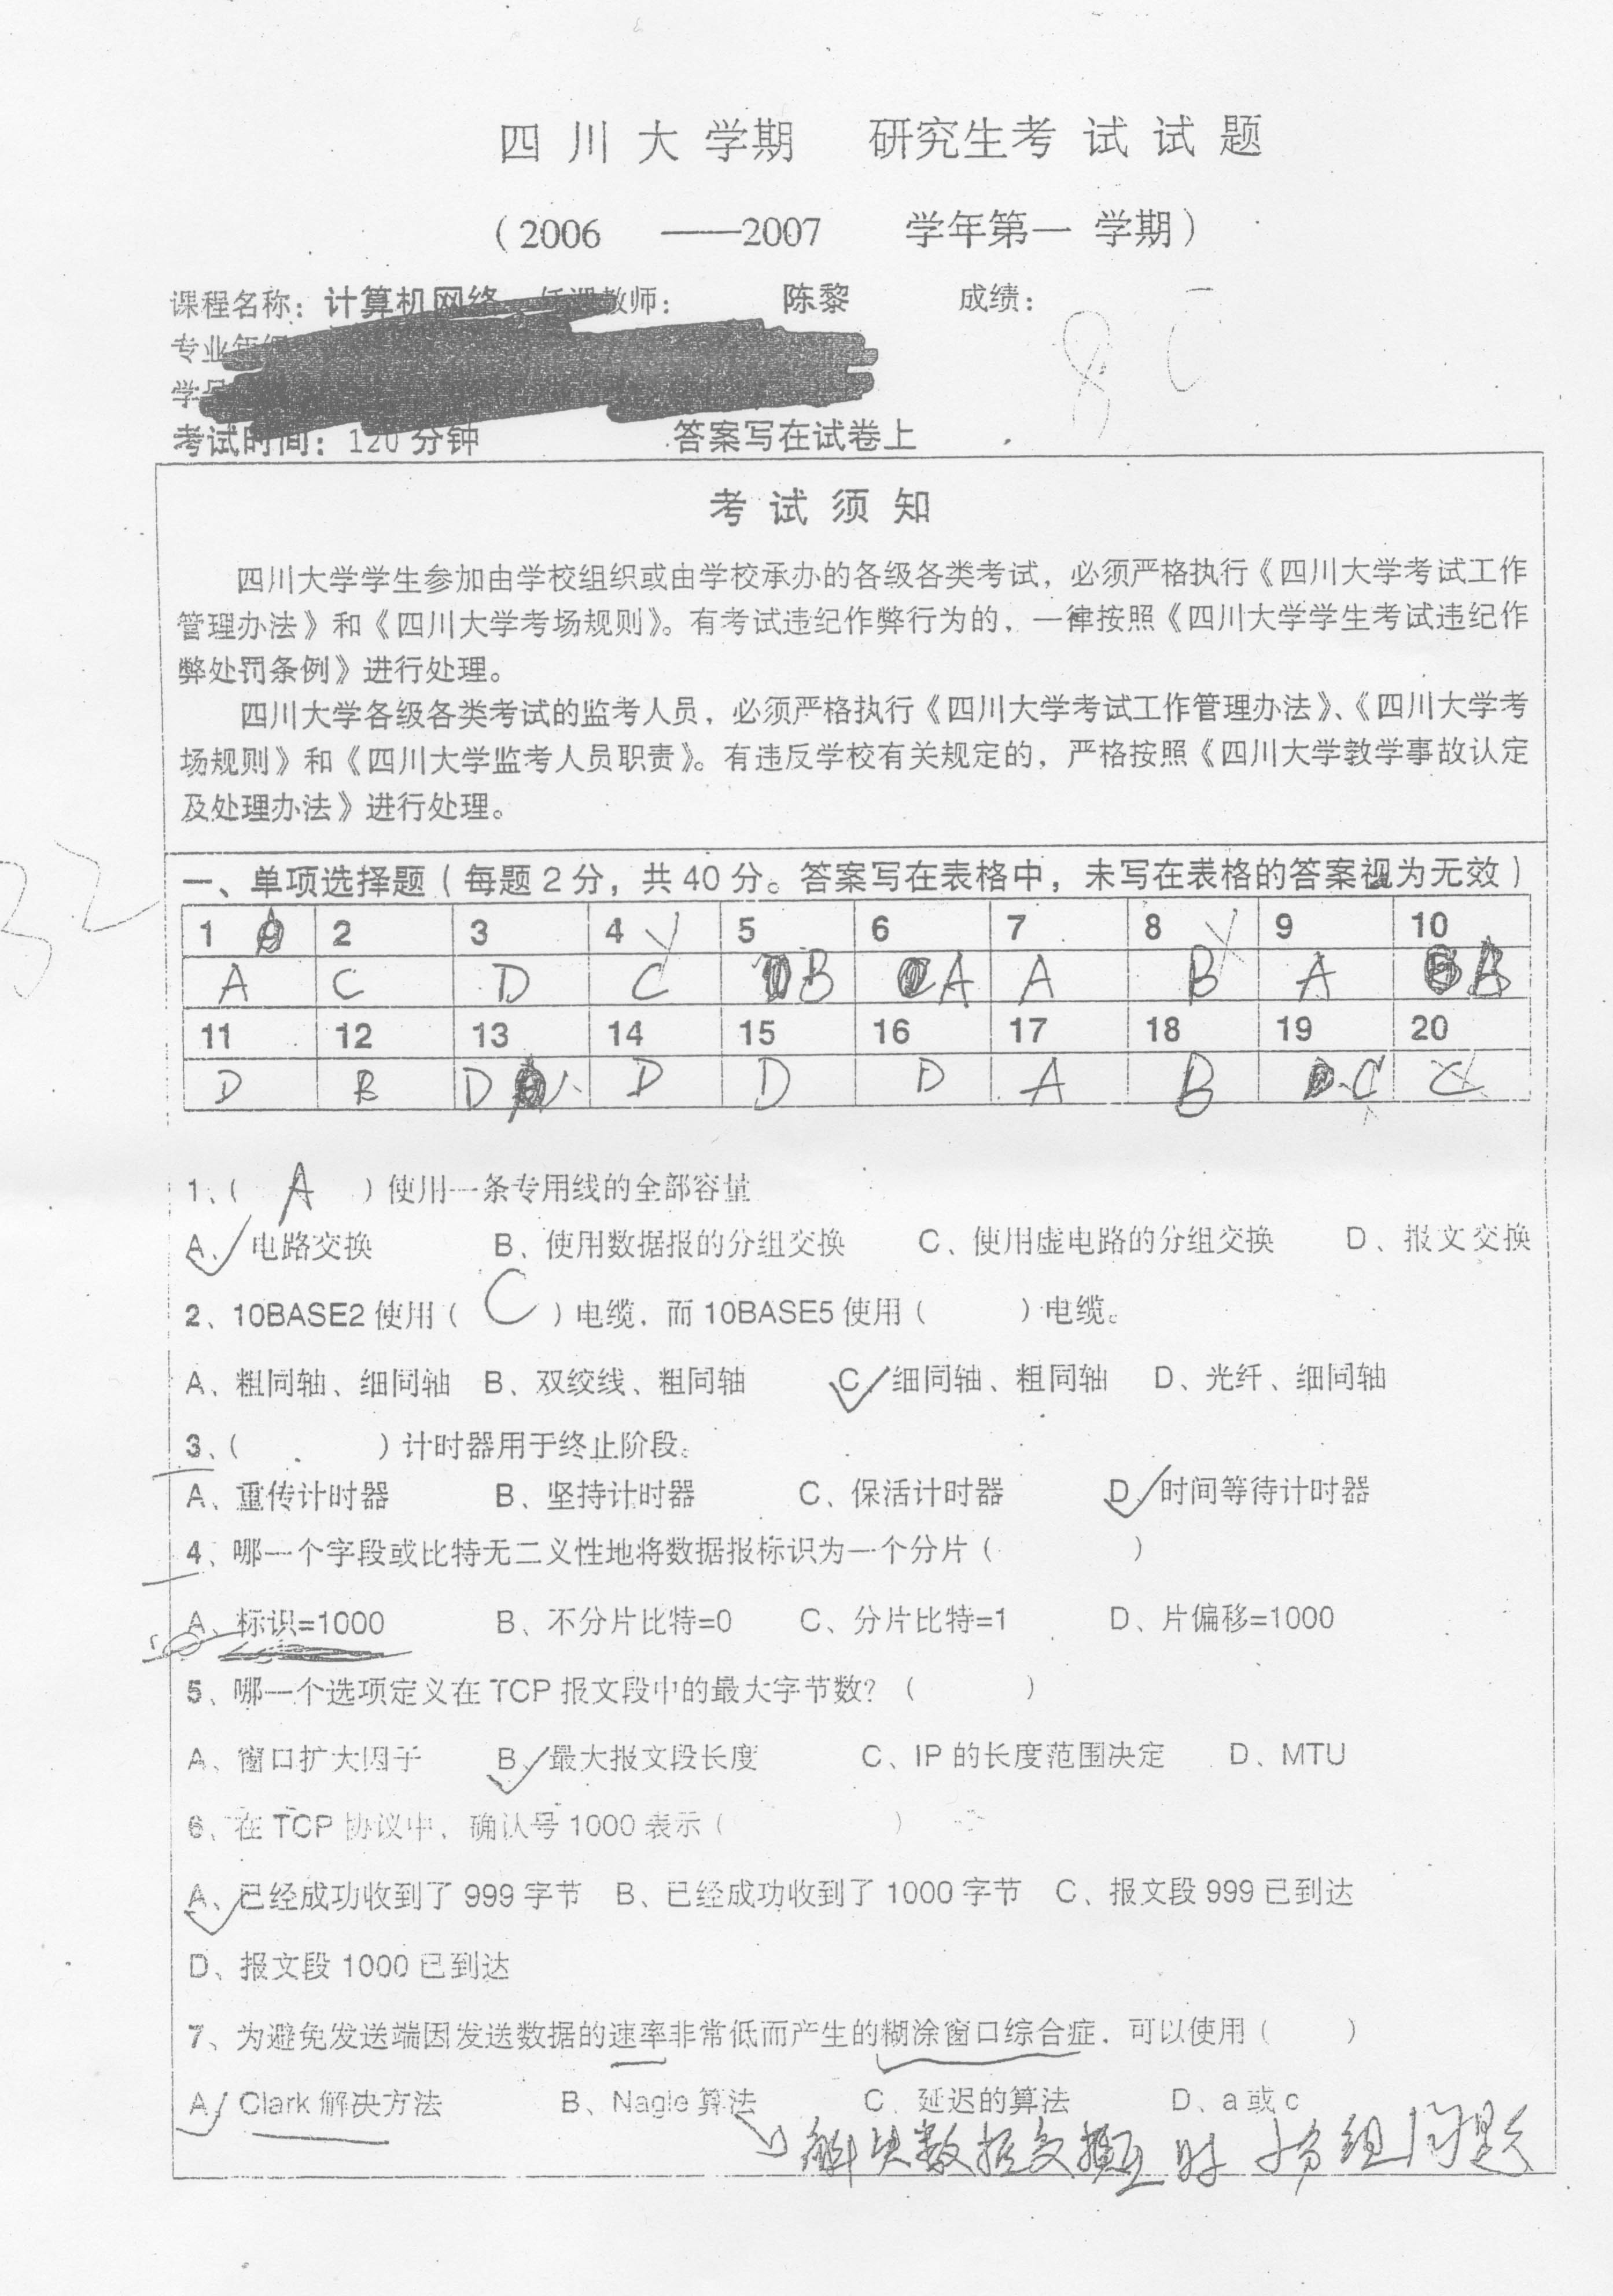 四 川 大 学期 研究生考 试 试 题
（2006 ——2007 学年第一 学期）
课程名称：计算机网络 教师： 陈黎 成绩：
专业年级
学号
考试时间：120 分钟 答案写在试卷上
考 试 须 知
四川大学学生参加由学校组织或由学校承办的各级各类考试，必须严格执行《四川大学考试工作
管理办法》和《四川大学考场规则》。有考试违纪作弊行为的，一律按照《四川大学学生考试违纪作
弊处罚条例》进行处理。
四川大学各级各类考试的监考人员，必须严格执行《四川大学考试工作管理办法》、《四川大学考
场规则》和《四川大学监考人员职责》。有违反学校有关规定的，严格按照《四川大学教学事故认定
及处理办法》进行处理。
32
一、单项选择题（每题 2 分，共 40 分。答案写在表格中，未写在表格的答案视为无效）
1 2 3 4 5 6 7 8 9 10
A C D C B A A B A B
11 12 13 14 15 16 17 18 19 20
D B D D D D A B C C
1、（ A ）使用一条专用线的全部容量
A、电路交换 B、使用数据报的分组交换 C、使用虚电路的分组交换 D、报文交换
2、10BASE2 使用（ C ）电缆，而 10BASE5 使用（ ）电缆。
A、粗同轴、细同轴 B、双绞线、粗同轴 C、细同轴、粗同轴 D、光纤、细同轴
3、（ ）计时器用于终止阶段。
A、重传计时器 B、坚持计时器 C、保活计时器 D、时间等待计时器
4、哪一个字段或比特无二义性地将数据报标识为一个分片（ ）
A、标识=1000 B、不分片比特=0 C、分片比特=1 D、片偏移=1000
5、哪一个选项定义在 TCP 报文段中的最大字节数？（ ）
A、窗口扩大因子 B、最大报文段长度 C、IP 的长度范围决定 D、MTU
6、在 TCP 协议中，确认号 1000 表示（ ）
A、已经成功收到了 999 字节 B、已经成功收到了 1000 字节 C、报文段 999 已到达
D、报文段 1000 已到达
7、为避免发送端因发送数据的速率非常低而产生的糊涂窗口综合症，可以使用（ ）
A、Clark 解决方法 B、Nagle 算法 C、延迟的算法 D、a 或 c
解决数据交互时 小分组问题